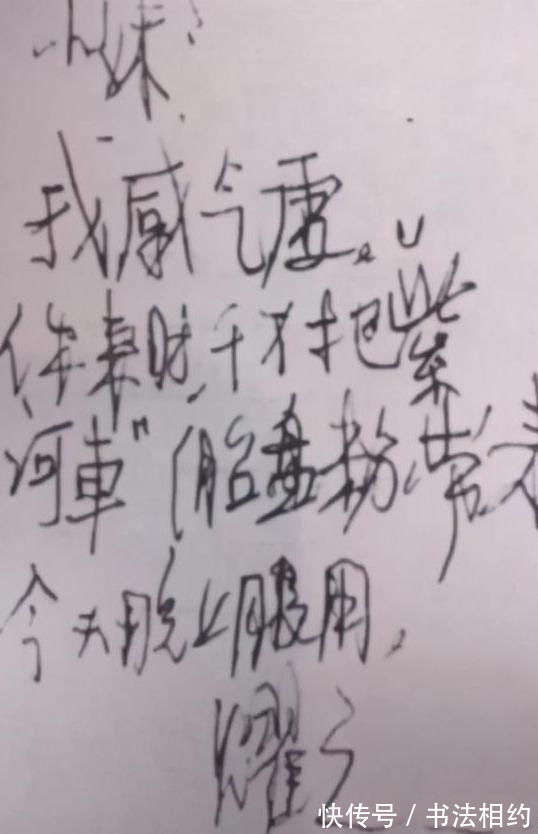 小妹:
我感气虚。
你来时,千万把"紫
河車"(胎盘粉)带来
今天晚上服用,
耀
快传号/书法相约